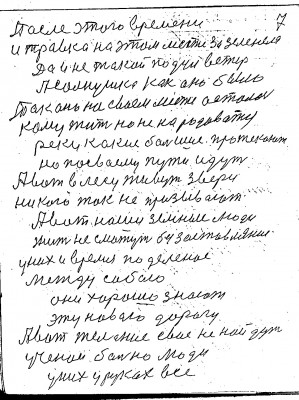 7
После этого времени
и травка на этом месте за зеленела
Да и не такой подул ветер
как оно было
Так оно на своем месте осталос
кому жит но не на
реки какие болшие протекают
но по своему пути идут
А вот в лесу живут звери
никого так не признавают
А вот наши земные люди
жит не смогут
у них и время по деленое
между собою
они хорошо знают
эту новаю дорогу
А вот желание свое не найдут
ученои люди
у них у руках все